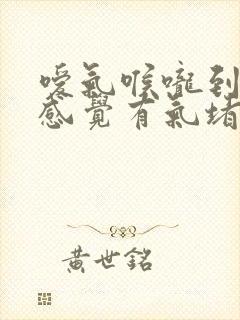 噯氣喉嚨到
感覺有氣堵
黃世銘